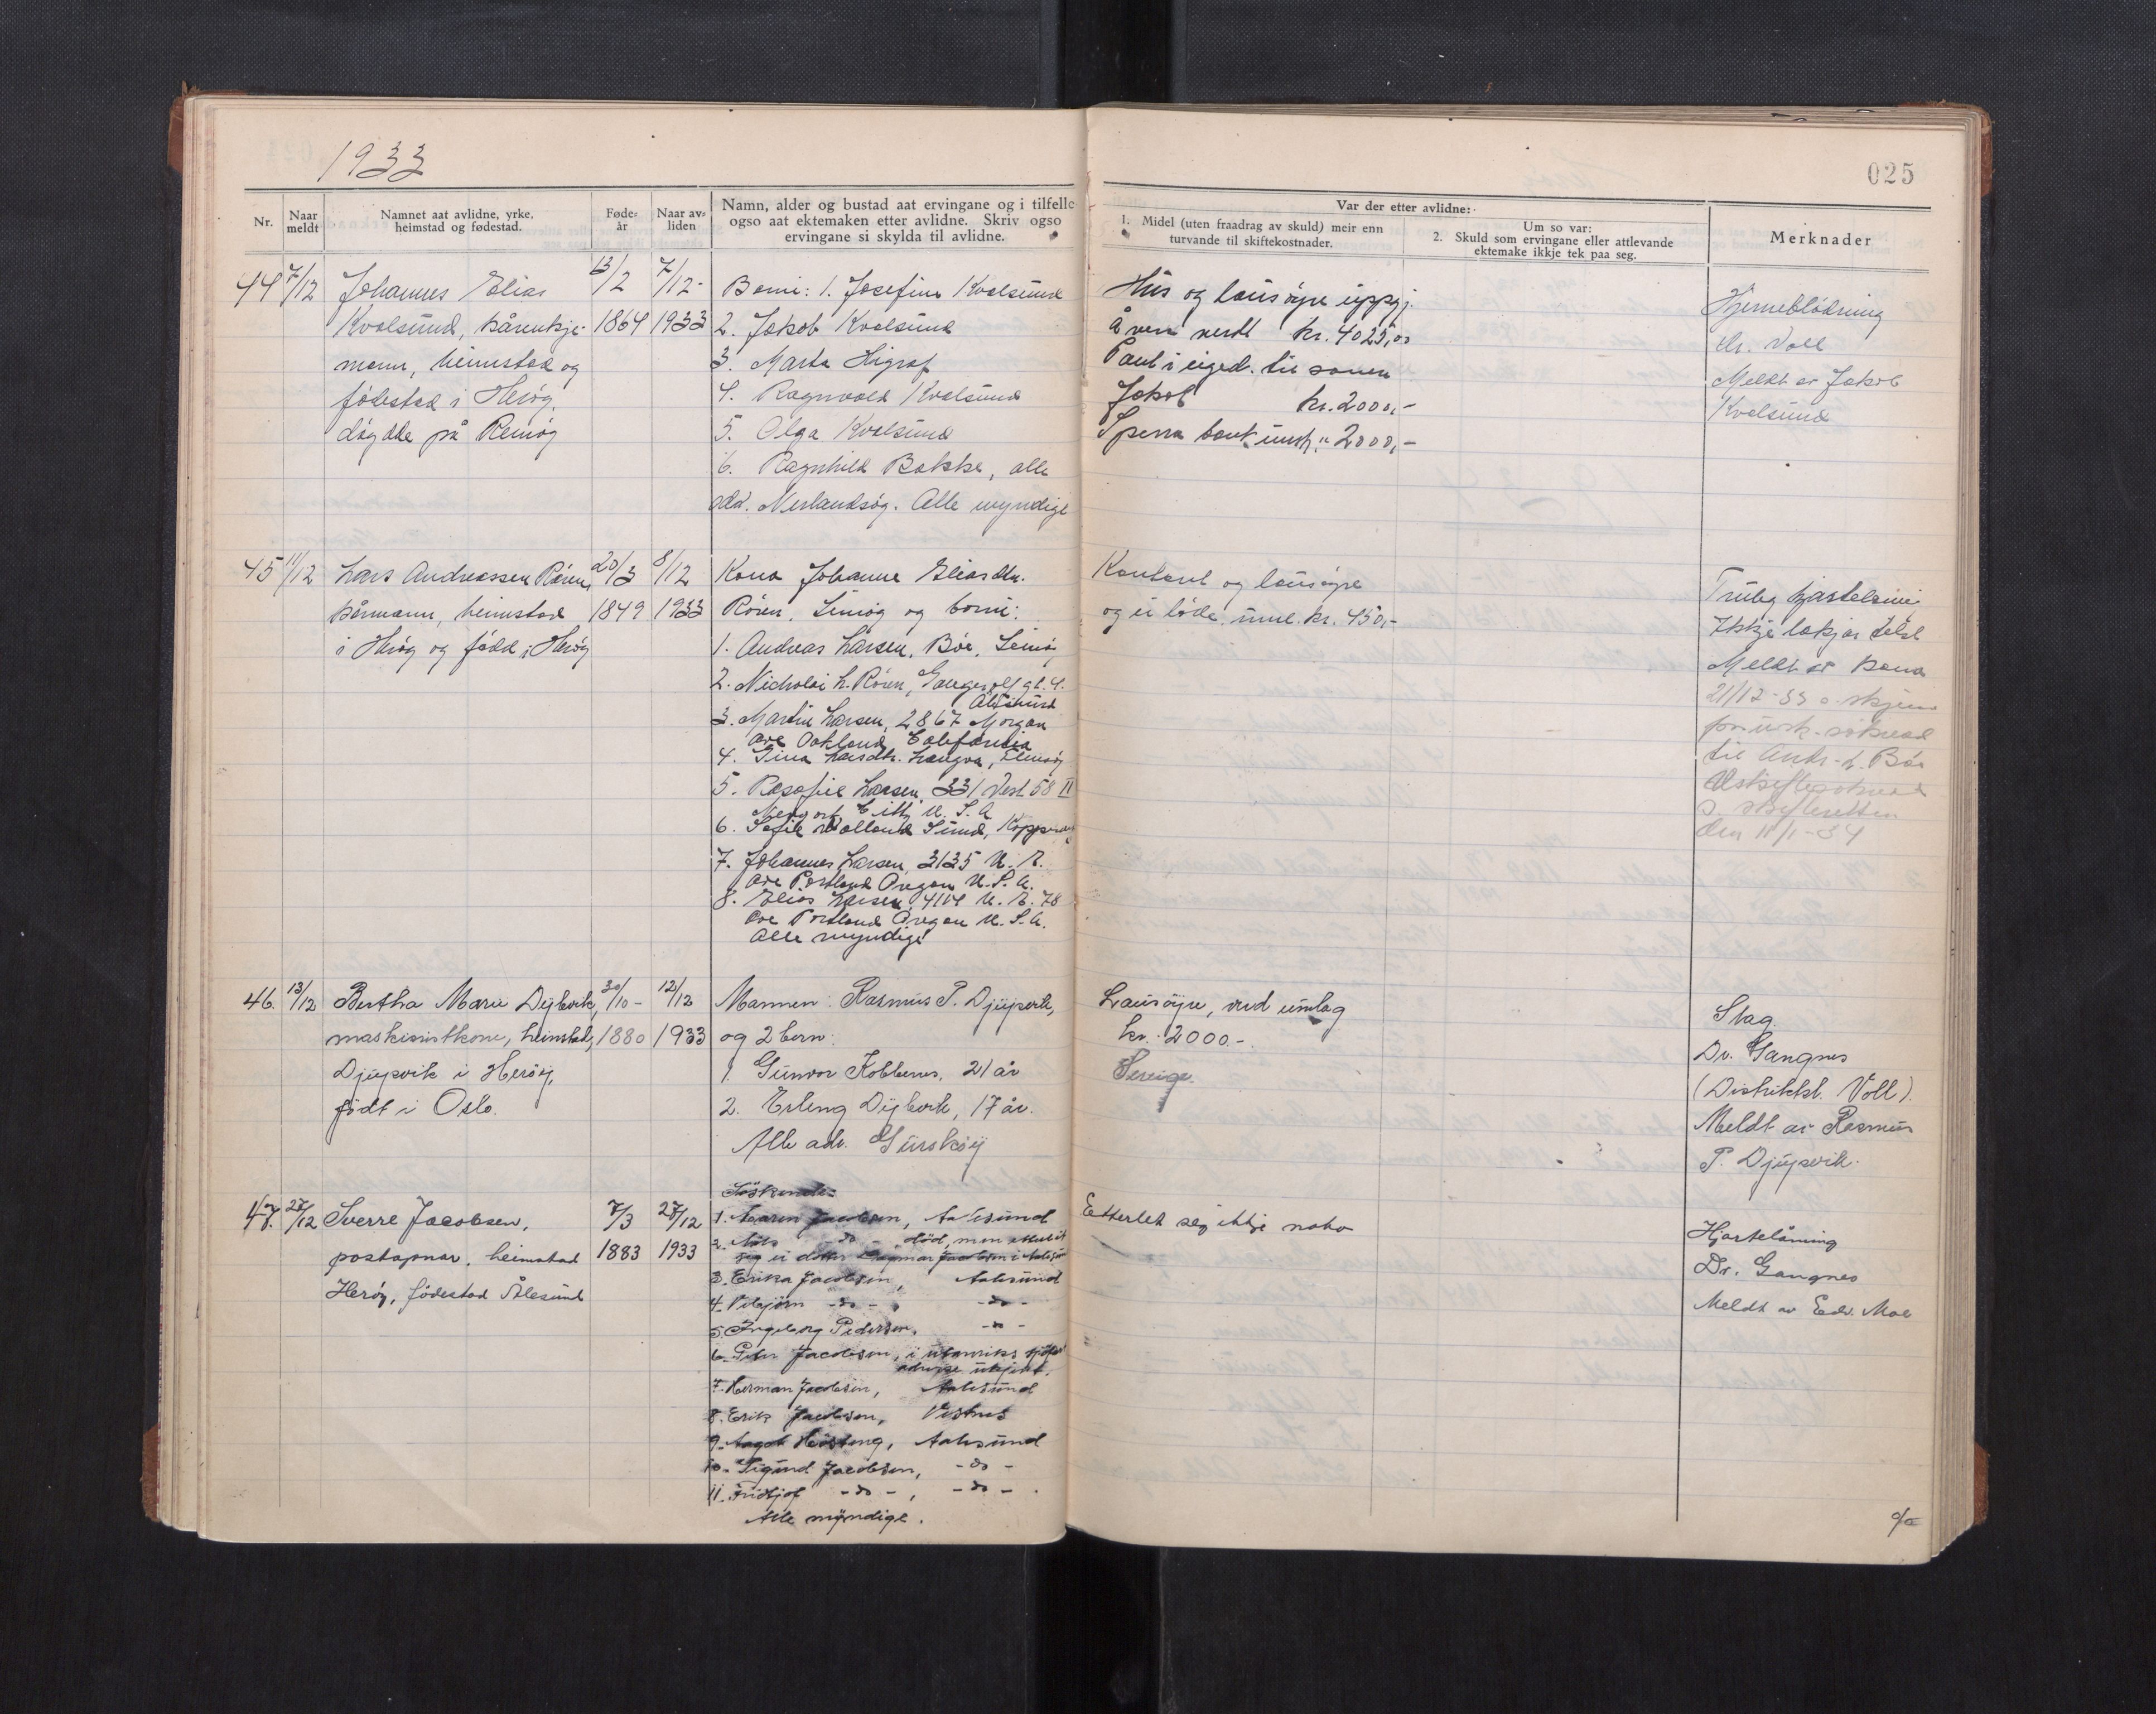 1933
025
Nr.
Naar meldt
Namnet aat avlidne, yrke, heimstad og fødestad.
Føde-år
Naar av-liden
Namn, alder og bustad aat ervingane og i tilfelle
ogso aat ektemaken etter avlidne. Skriv ogso
ervingane si skylda til avlidne.
Var der etter avlidne:
1. Midel (uten fraadrag av skuld) meir enn
turvande til skiftekostnader.
Um so var:
2. Skuld som ervingane eller attlevande
ektemake ikkje tek paa seg.
Merknader
44 7/12 Johannes Elias
Kvalsund, kårenkje-
mann, heimstad og
fødestad i Herøy,
døydde på Remøy
13/2
1864
7/12-
1933
Borni: 1. Josefine Kvalsund
2. Jakob Kvalsund
3. Marta
4. Ragnvald Kvalsund
5. Olga Kvalsund
6. Ragnhild Bakke, alle
adr. Nerlandsøy. Alle myndige
Hus og lausøyre uppgj.
å vera verdt kr. 4025,00
Pant i eiged. til sonen
Jakob kr. 2000,-
bank " 2000,-
Hjerneblødning
dr. Voll
Meldt av Jakob
Kvalsund
45 11/12 Lars Andreassen Røren,
kårmann, heimstad
i Herøy og fødd i Herøy
20/3
1849
8/12
1933
Kona Johanne Eliasdtr.
Røren, Leinøy og borni:
1. Andreas Larsen, Bøe, Leinøy
2. Nicholai L. Røren, gt. 4.
Ålesund
3. Martin Larsen, 2867 Morgan
ave Oakland California
4. Gina Larsdtr.
5. Larsen, 331 Vest 58 II
City U.S.A
6. Sofie
7. Johannes Larsen, 3135 N.E.
ave Portland Oregon U.S.A.
8. Elias Larsen 4114 N.E. 78
ave Portland Oregon U.S.A.
Alle myndige
Kontant og lausøyre
og ei løde, kr. 450,-
Truleg
Ikkje lækjar
Meldt av kona
21/12-33
til Andr. L. Bøe
den 11/1-34
46. 13/12 Bertha Marie
maskinistkone, heimstad,
Djupvik i Herøy,
født i Oslo.
30/10-
1880
12/12
1933
Mannen: Rasmus P. Djupvik,
og 2 born:
1. Gunvor 21 år
2. Erling 17 år.
Alle adr. Gurskøy
Lausøyre, verd umlag
kr. 2000.-
Slag.
Dr. Gangnes
(Distriktsl. Voll).
Meldt av Rasmus
P. Djupvik.
47. 28/12 Sverre Jacobsen,
postopnar, heimstad
Herøy, fødestad Ålesund
7/3
1883
27/12
1933
Søskende:
1. Jacobsen, Aalesund
2. -do- død, men
3. Erika Jacobsen, Aalesund
4. -do-, -do-
5. Ingeborg Pedersen, -do-
6. Peter Jacobsen, i utanriks
adresse ukjent.
7. Herman Jacobsen, Aalesund
8. Erik Jacobsen, Vestnes
9. Aagot Aalesund
10. Sigurd Jacobsen, -do-
11. Fridtjof -do-, -do-.
Alle myndige.
Etterlet seg ikkje noko
Hjartelåming
Dr. Gangnes
Meldt av Edv. Moe